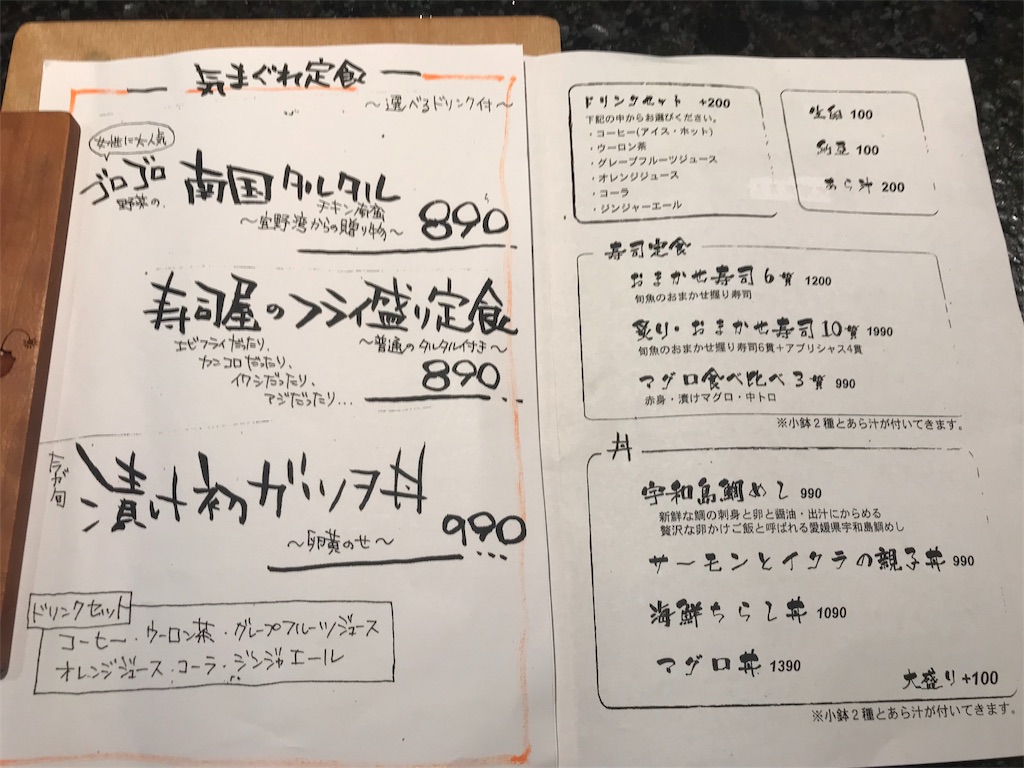 気まぐれ定食
〜選べるドリンク付〜
女性に大人気
ゴロゴロ
野菜の
南国タルタル
チキン南蛮
〜宜野湾からの贈り物〜
890
寿司屋のフライ盛り定食
〜普通のタルタル付き〜
エビフライだったり、
カニコロだったり、
イワシだったり、
アジだったり...
890
今が旬
漬け初ガツヲ丼
〜卵黄のせ〜
990
ドリンクセット
コーヒー・ウーロン茶・グレープフルーツジュース
オレンジジュース・コーラ・ジンジャエール
ドリンクセット +200
下記の中からお選びください。
・コーヒー(アイス・ホット)
・ウーロン茶
・グレープフルーツジュース
・オレンジジュース
・コーラ
・ジンジャーエール
生卵 100
納豆 100
あら汁 200
寿司定食
おまかせ寿司6貫 1200
旬魚のおまかせ握り寿司
炙り・おまかせ寿司10貫 1990
旬魚のおまかせ握り寿司6貫+アブリシャス4貫
マグロ食べ比べ3貫 990
赤身・漬けマグロ・中トロ
※小鉢2種とあら汁が付いてきます。
丼
宇和島鯛めし 990
新鮮な鯛の刺身と卵と醤油・出汁にからめる
贅沢な卵かけご飯と呼ばれる愛媛県宇和島鯛めし
サーモンとイクラの親子丼 990
海鮮ちらし丼 1090
マグロ丼 1390
大盛り+100
※小鉢2種とあら汁が付いてきます。